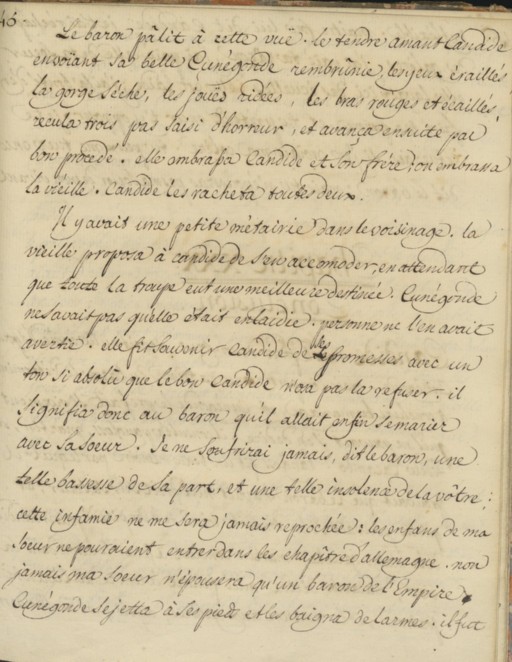 46
Le baron pâlit à cette vuë. le tendre amant Candide
en voïant sa belle Cunégonde rembrunie, les yeux éraillés
la gorge sèche, les jouës ridées, les bras rouges et écaillés,
recula trois pas saisi d'horreur, et avança ensuite par
bon procedé. elle embrassa Candide et son frère: on embrassa
la vieille. Candide les racheta toutes deux.
Il y avait une petite métairie dans le voisinage. la
vieille proposa à candide de s'en accomoder, en attendant
que toute la troupe eut une meilleure destinée. Cunégonde
ne savait pas qu'elle était enlaidie. personne ne l'en avait
avertie. elle fit souvenir Candide de ses promesses avec un
ton si absolu que le bon Candide n'osa pas la refuser. il
signifia donc au baron qu'il allait enfin se marier
avec sa soeur. Je ne soufrirai jamais, dit le baron, une
telle bassesse de sa part, et une telle insolence de la vôtre;
cette infamie ne me sera jamais reprochée: les enfans de ma
soeur ne pouraient entrer dans les chapitre d'allemagne. non
jamais ma soeur n'épousera qu'un baron de l'Empire.
Cunégonde se jetta à ses pieds et les baigna de larmes. il fut